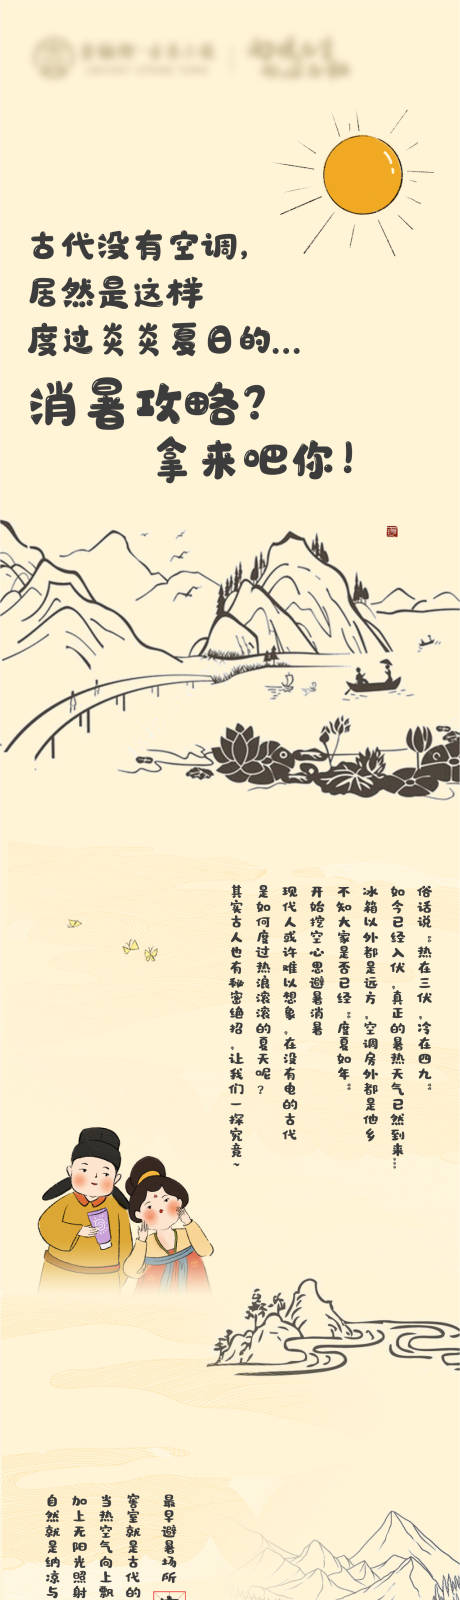 古代没有空调,
居然是这样
度过炎炎夏日的...
消暑攻略?
拿来吧你!
俗话说“热在三伏,冷在四九”
如今已经入伏,真正的暑热天气已然到来...
冰箱以外都是远方,空调房外都是他乡
不知大家是否已经“度夏如年”
开始挖空心思避暑消暑
现代人或许难以想象,在没有电的古代
是如何度过热浪滚滚的夏天呢?
其实古人也有秘密绝招,让我们一探究竟~
最早避暑场所
窖室就是古代的
当热空气向上飘
加上无阳光照射
自然就是纳凉与